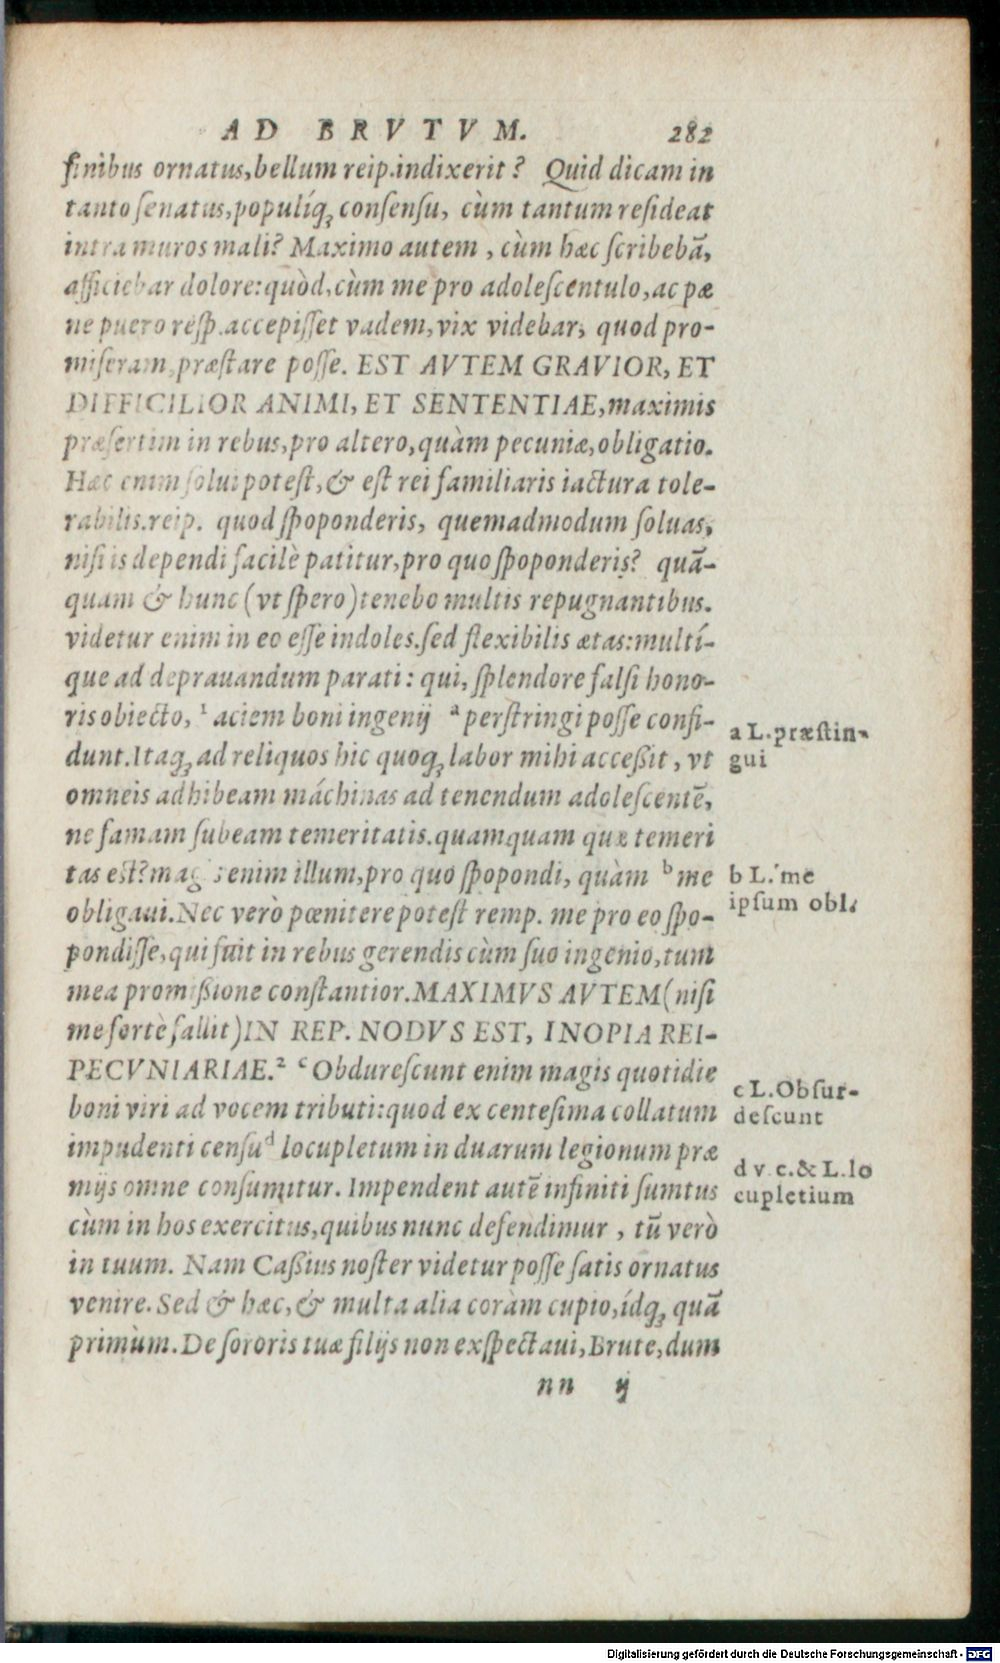 AD BRVTVM. 282
finibus ornatus, bellum reip. indixerit? Quid dicam in
tanto senatus, populíq́; consensu, cùm tantum resideat
intra muros mali? Maximo autem, cùm hæc scribebã,
afficiebar dolore: quòd, cùm me pro adolescentulo, ac pæ
ne puero resp. accepisset vadem, vix videbar, quod pro-
miseram, præstare posse. EST AVTEM GRAVIOR, ET
DIFFICILIOR ANIMI, ET SENTENTIAE, maximis
præsertim in rebus, pro altero, quàm pecuniæ, obligatio.
Hæc enim solui potest, & est rei familiaris iactura tole-
rabilis. reip. quod spoponderis, quemadmodum soluas,
nisi is dependi facilè patitur, pro quo spoponderis? quã-
quam & hunc (vt spero) tenebo multis repugnantibus.
videtur enim in eo esse indoles. sed flexibilis ætas: multí-
que ad deprauandum parati: qui, splendore falsi hono-
ris obiecto, ¹ aciem boni ingenij ª perstringi posse confi-
dunt. Itaq; ad reliquos hic quoq; labor mihi accessit, vt
omneis adhibeam máchinas ad tenendum adolescentẽ,
ne famam subeam temeritatis. quamquam quæ temeri
tas est? mag s enim illum, pro quo spopondi, quàm ᵇ me
obligaui. Nec verò pœnitere potest remp. me pro eo spo-
pondisse, qui fuit in rebus gerendis cùm suo ingenio, tum
mea promissione constantior. MAXIMVS AVTEM (nisi
me fortè fallit) IN REP. NODVS EST, INOPIA REI-
PECVNIARIAE. ² ᶜ Obdurescunt enim magis quotidie
boni viri ad vocem tributi: quod ex centesima collatum
impudenti censu ᵈ locupletum in duarum legionum præ
mijs omne consumitur. Impendent autẽ infiniti sumtus
cùm in hos exercitus, quibus nunc defendimur, tũ verò
in tuum. Nam Cassius noster videtur posse satis ornatus
venire. Sed & hæc, & multa alia coràm cupio, ídq; quã
primùm. De sororis tuæ filijs non exspectaui, Brute, dum
nn ij
a L. præstin-
gui
b L. me
ipsum obl.
c L. Obsur-
descunt
d v. c. & L. lo
cupletium
Digitalisierung gefördert durch die Deutsche Forschungsgemeinschaft - DFG